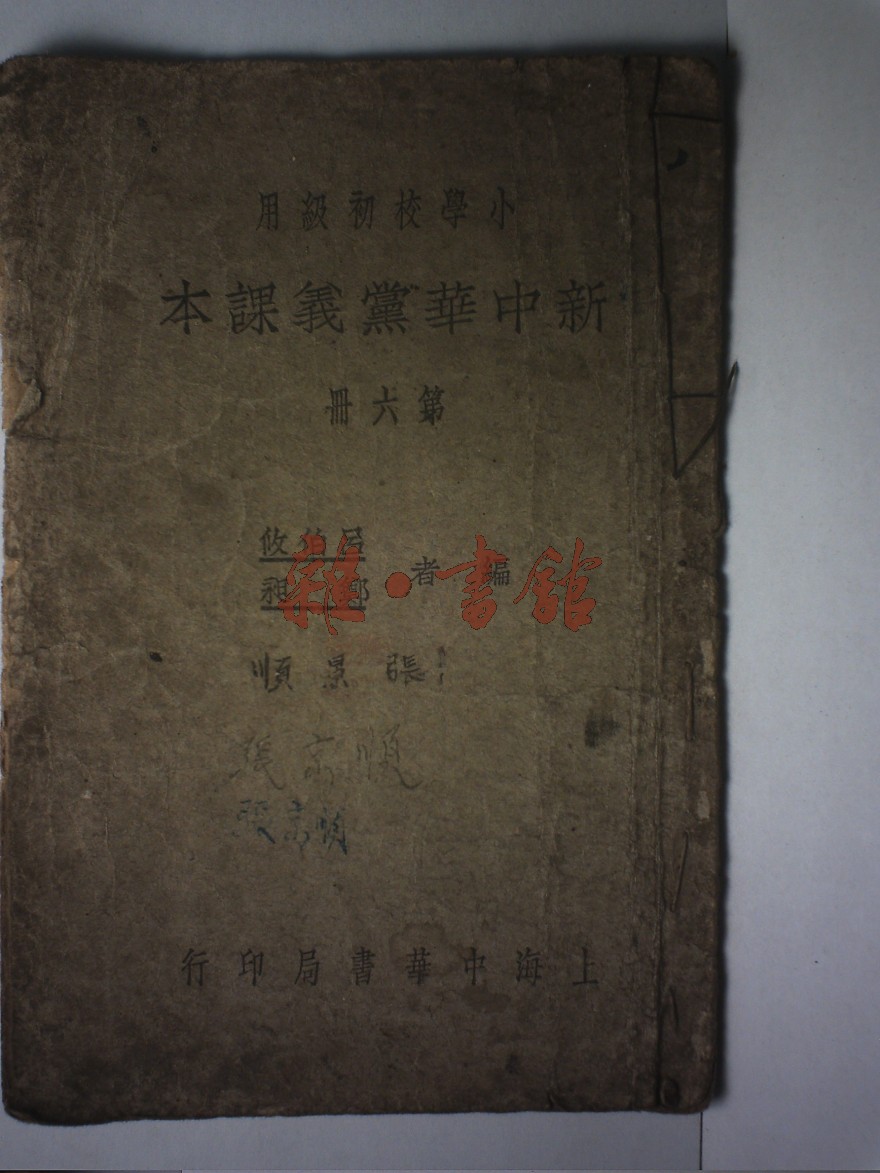 小學校初級用
新中華黨義課本
第六冊
編者
呂伯攸
鄭昶
雜·書館
張景順
張景順
張景順
上海中華書局印行